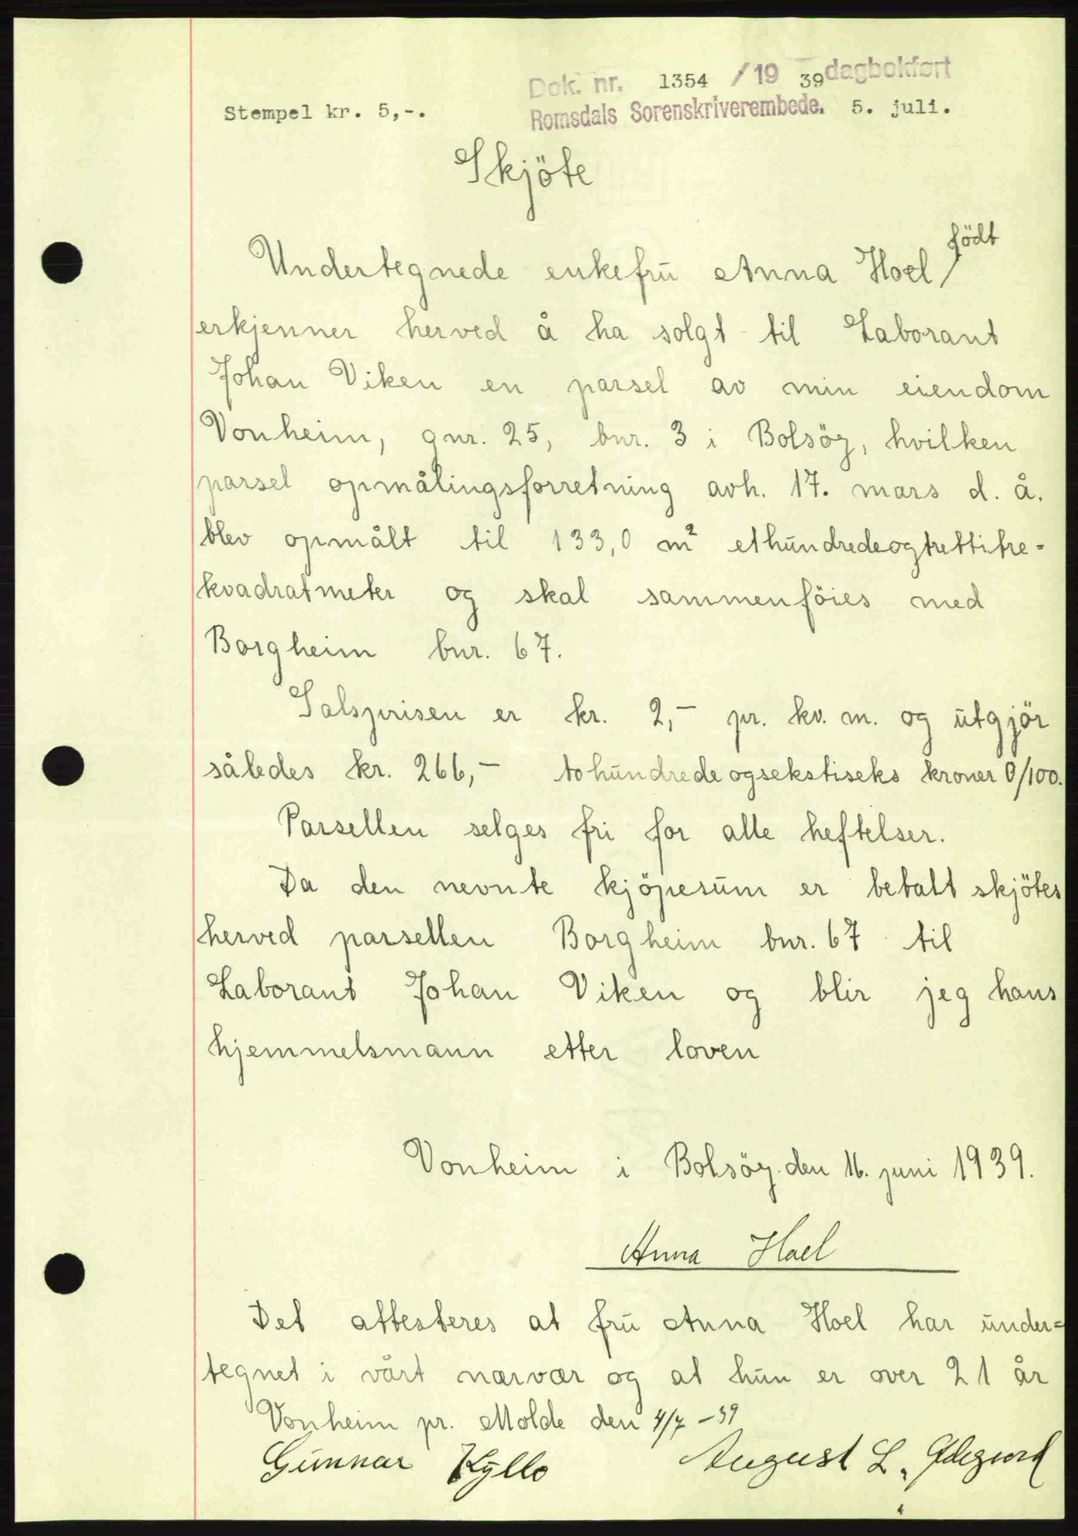 Dok. nr. 1354 /19 39 dagbokført
Stempel kr. 5,-. Romsdals Sorenskriverembede. 5. juli.
Skjöte
født
Undertegnede enkefru Anna Hoel /
erkjenner herved å ha solgt til Laborant
Johan Viken en parsel av min eiendom
Vonheim, gnr. 25, bnr. 3 i Bolsöy, hvilken
parsel opmålingsforretning avh. 17. mars d. å.
blev opmålt til 133,0 m² ethundredeogtrettitre-
kvadratmeter og skal sammenföies med
Borgheim bnr. 67.
Salsprisen er kr. 2,- pr. kv. m. og utgjör
således kr. 266,- tohundredeogsekstiseks kroner 0/100.
Parsellen selges fri for alle heftelser.
Da den nevnte kjöpesum er betalt skjötes
herved parsellen Borgheim bnr. 67 til
Laborant Johan Viken og blir jeg hans
hjemmelsmann etter loven
Vonheim i Bolsöy den 16. juni 1939.
Anna Hoel
Det attesteres at fru Anna Hoel har under-
tegnet i vårt nærvær og at hun er over 21 år
Vonheim pr. Molde den 4/7 -39
Gunnar Kyllo August L. Ødegård